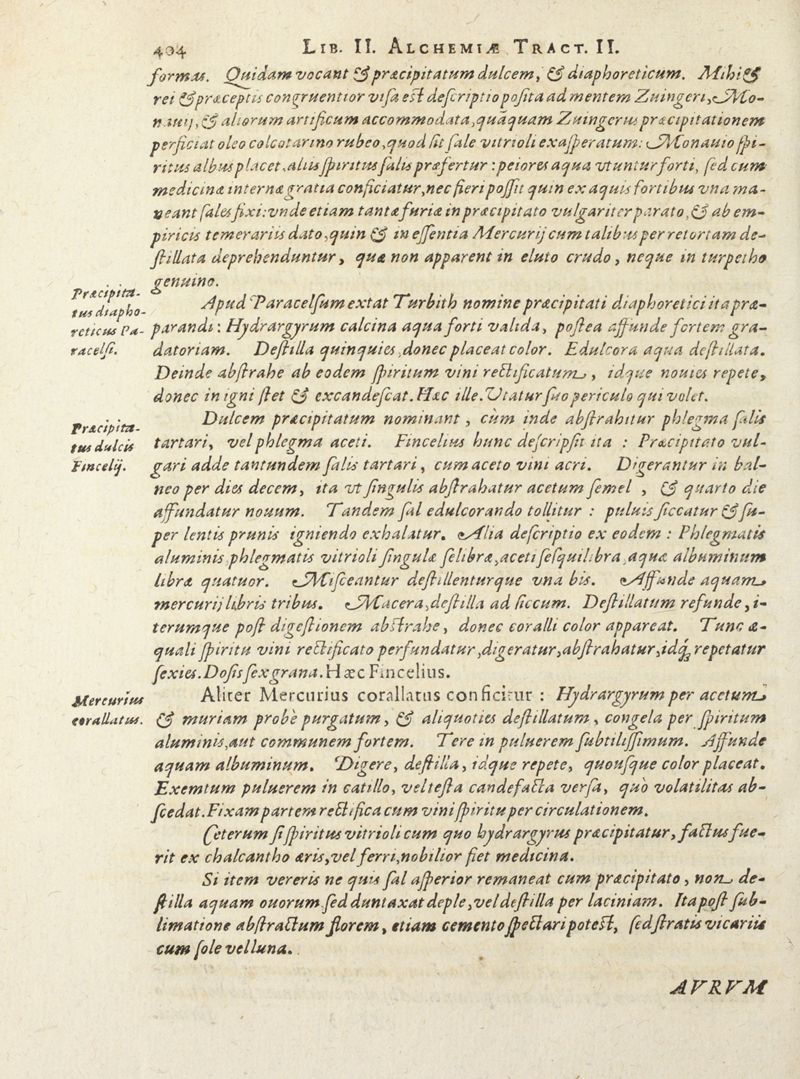 404 LIB. II. ALCHEMIÆ TRACT. II.
formas. Quidam vocant & præcipitatum dulcem, & diaphoreticum. Mihi &
rei & præceptis congruentior visa est descriptio posita ad mentem Zuingeri, Mo-
nauij, & aliorum artificum accommodata, quāquam Zuingerus præcipitationem
perficiat oleo colcotarino rubeo, quod sit sale vitrioli exasperatum: Monauio spi-
ritus albus placet, aliis spiritus salis præfertur: peiores aqua vtuntur forti, sed cum
medicinæ internæ gratia conficiatur, nec fieri possit quin ex aquis fortibus vna ma-
neant sales fixi: vnde etiam tantæ furiæ in præcipitato vulgariter parato, & ab em-
piricis temerariis dato, quin & in essentia Mercurij cum talibus per retortam de-
stillata deprehenduntur, quæ non apparent in eluto crudo, neque in turpetho
genuino.
Præcipita-
tus diapho-
reticus Pa-
racelsi.
Apud Paracelsum extat Turbith nomine præcipitati diaphoretici ita præ-
parandi: Hydrargyrum calcina aqua forti valida, postea affunde fortem gra-
datoriam. Destilla quinquies, donec placeat color. Edulcora aqua destillata.
Deinde abstrahe ab eodem spiritum vini rectificatum, idque nouies repete,
donec in igni stet & excandescat. Hæc ille. Vtatur suo periculo qui volet.
Præcipita-
tus dulcis
Fincelij.
Dulcem præcipitatum nominant, cùm inde abstrahitur phlegma salis
tartari, vel phlegma aceti. Fincelius hunc descripsit ita : Præcipitato vul-
gari adde tantundem salis tartari, cum aceto vini acri. Digerantur in bal-
neo per dies decem, ita vt singulis abstrahatur acetum semel , & quarto die
affundatur nouum. Tandem sal edulcorando tollitur : puluis siccatur & su-
per lentis prunis igniendo exhalatur. Alia descriptio ex eodem : Phlegmatis
aluminis, phlegmatis vitrioli singulæ selibræ, aceti sesquilibra, aquæ albuminum
libræ quatuor. Misceantur destillenturque vna bis. Affunde aquam
mercurij libris tribus. Macera, destilla ad siccum. Destillatum refunde, i-
terumque post digestionem abstrahe, donec coralli color appareat. Tunc æ-
quali spiritu vini rectificato perfundatur, digeratur, abstrahatur, idq́; repetatur
sexies. Dosis sex grana. Hæc Fincelius.
Mercurius
corallatus.
Aliter Mercurius corallatus conficitur : Hydrargyrum per acetum
& muriam probè purgatum, & aliquoties destillatum, congela per spiritum
aluminis, aut communem fortem. Tere in puluerem subtilissimum. Affunde
aquam albuminum. Digere, destilla, idque repete, quousque color placeat.
Exemtum puluerem in catillo, vel testa candefacta versa, quò volatilitas ab-
scedat. Fixam partem rectifica cum vini spiritu per circulationem.
Ceterum si spiritus vitrioli cum quo hydrargyrus præcipitatur, factus fue-
rit ex chalcantho æris, vel ferri, nobilior fiet medicina.
Si item vereris ne quis sal asperior remaneat cum præcipitato, non de-
stilla aquam ouorum sed duntaxat deple, vel destilla per laciniam. Ita post sub-
limatione abstractum florem, etiam cemento spectari potest, sed stratis vicariis
cum sole vel luna.
AVRVM